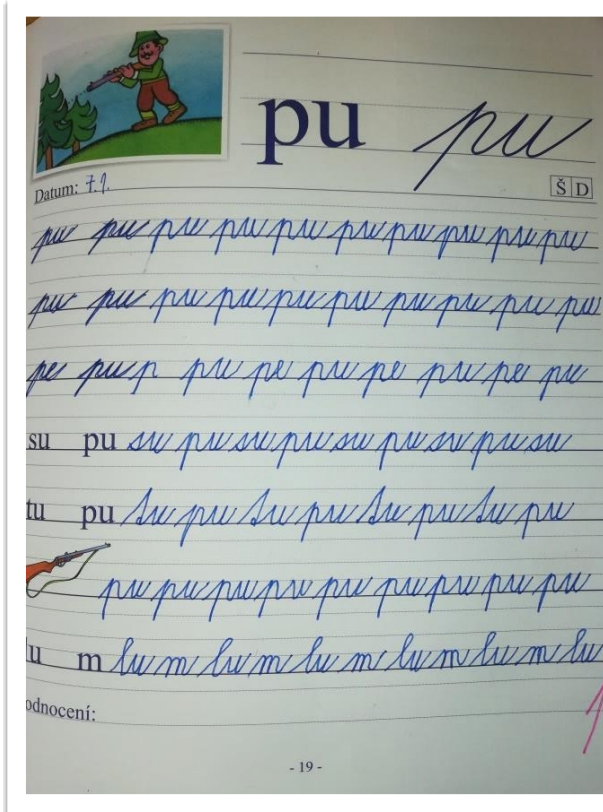 pu pu
Datum: 7.9. Š D
pu pu pu pu pu pu pu pu pu pu
pu pu pu pu pu pu pu pu pu pu
pe pu p pu pe pu pe pu pe pu
su pu su pu su pu su pu su pu su
tu pu tu pu tu pu tu pu tu pu
pu pu pu pu pu pu pu pu pu
u m lu m lu m lu m lu m lu m lu
odnocení:
- 19 -